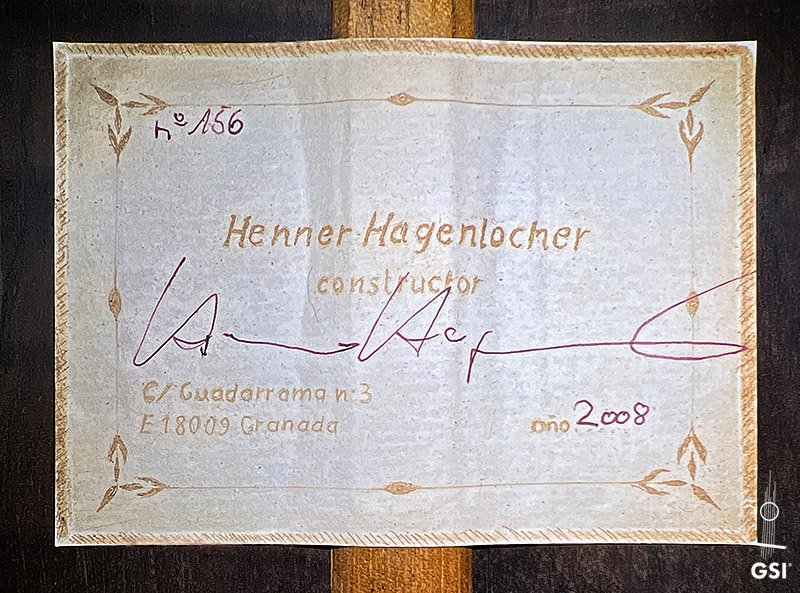 nº 156
Henner Hagenlocher
constructor
C/ Guadarrama n: 3
E 18009 Granada
año 2008
GSI